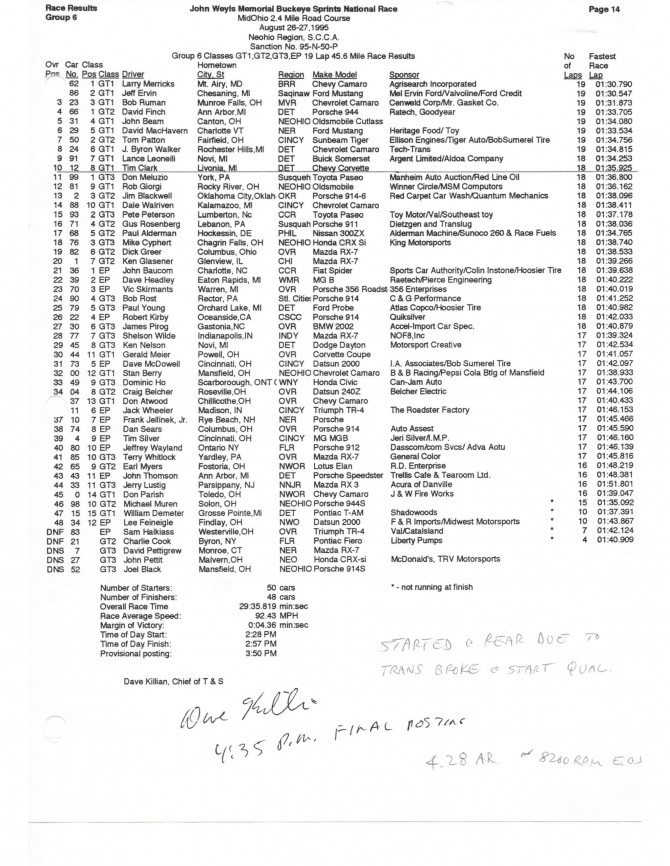 Race Results John Weyls Memorial Buckeye Sprints National Race Page 14
Group 6 MidOhio 2.4 Mile Road Course
August 26-27,1995
Neohio Region, S.C.C.A.
Sanction No. 95-N-50-P
Group 6 Classes GT1,GT2,GT3,EP 19 Lap 45.6 Mile Race Results
No Fastest
Ovr Car Class Hometown of Race
Pos No. Pos Class Driver City, St Region Make Model Sponsor Laps Lap
62 1 GT1 Larry Merricks Mt. Airy, MD BRR Chevy Camaro Agrisearch Incorporated 19 01:30.790
86 2 GT1 Jeff Ervin Chesaning, MI Saginaw Ford Mustang Mel Ervin Ford/Valvoline/Ford Credit 19 01:30.547
3 23 3 GT1 Bob Ruman Munroe Falls, OH MVR Chevrolet Camaro Cenweld Corp/Mr. Gasket Co. 19 01:31.873
4 66 1 GT2 David Finch Ann Arbor,MI DET Porsche 944 Ratech, Goodyear 19 01:33.705
5 31 4 GT1 John Beam Canton, OH NEOHIO Oldsmobile Cutlass 19 01:34.080
6 29 5 GT1 David MacHavern Charlotte VT NER Ford Mustang Heritage Food/ Toy 19 01:33.534
7 50 2 GT2 Tom Patton Fairfield, OH CINCY Sunbeam Tiger Ellison Engines/Tiger Auto/BobSumerel Tire 19 01:34.756
8 24 6 GT1 J. Byron Walker Rochester Hills,MI DET Chevrolet Camaro Tech-Trans 19 01:34.815
9 91 7 GT1 Lance Leonelli Novi, MI DET Buick Somerset Argent Limited/Aldoa Company 18 01:34.253
10 12 8 GT1 Tim Clark Livonia, MI DET Chevy Corvette 18 01:35.925
11 99 1 GT3 Don Meluzio York, PA Susqueh Toyota Paseo Manheim Auto Auction/Red Line Oil 18 01:36.800
12 81 9 GT1 Rob Giorgi Rocky River, OH NEOHIO Oldsmobile Winner Circle/MSM Computors 18 01:36.162
13 2 3 GT2 Jim Blackwell Oklahoma City,Oklah OKR Porsche 914-6 Red Carpet Car Wash/Quantum Mechanics 18 01:38.096
14 88 10 GT1 Dale Walriven Kalamazoo, MI CINCY Chevrolet Camaro 18 01:38.411
15 93 2 GT3 Pete Peterson Lumberton, Nc CCR Toyota Paseo Toy Motor/Val/Southeast toy 18 01:37.178
16 71 4 GT2 Gus Rosenberg Lebanon, PA Susquah Porsche 911 Dietzgen and Translug 18 01:38.036
17 68 5 GT2 Paul Alderman Hockessin, DE PHIL Nissan 300ZX Alderman Machine/Sunoco 260 & Race Fuels 18 01:34.765
18 76 3 GT3 Mike Cyphert Chagrin Falls, OH NEOHIO Honda CRX Si King Motorsports 18 01:38.740
19 82 6 GT2 Dick Greer Columbus, Ohio OVR Mazda RX-7 18 01:38.533
20 1 7 GT2 Ken Glasener Glenview, IL CHI Mazda RX-7 18 01:39.266
21 36 1 EP John Baucom Charlotte, NC CCR Fiat Spider Sports Car Authority/Colin Instone/Hoosier Tire 18 01:39.638
22 39 2 EP Dave Headley Eaton Rapids, MI WMR MG B Raetech/Pierce Engineering 18 01:40.222
23 70 3 EP Vic Skirmants Warren, MI OVR Porsche 356 Roadst 356 Enterprises 18 01:40.019
24 90 4 GT3 Bob Rost Rector, PA Stl. Cities Porsche 914 C & G Performance 18 01:41.252
25 79 5 GT3 Paul Young Orchard Lake, MI DET Ford Probe Atlas Copco/Hoosier Tire 18 01:40.982
26 22 4 EP Robert Kirby Oceanside,CA CSCC Porsche 914 Quiksilver 18 01:42.033
27 30 6 GT3 James Pirog Gastonia,NC OVR BMW 2002 Accel-Import Car Spec. 18 01:40.879
28 77 7 GT3 Shelson Wilde Indianapolis,IN INDY Mazda RX-7 NOF8,Inc 17 01:39.324
29 45 8 GT3 Ken Nelson Novi, MI DET Dodge Dayton Motorsport Creative 17 01:42.534
30 44 11 GT1 Gerald Meier Powell, OH OVR Corvette Coupe 17 01:41.057
31 73 5 EP Dave McDowell Cincinnati, OH CINCY Datsun 2000 I.A. Associates/Bob Sumerel Tire 17 01:42.097
32 00 12 GT1 Stan Berry Mansfield, OH NEOHIO Chevrolet Camaro B & B Racing/Pepsi Cola Btlg of Mansfield 17 01:38.933
33 49 9 GT3 Dominic Ho Scarboroough, ONT C WNY Honda Civic Can-Jam Auto 17 01:43.700
34 04 8 GT2 Craig Belcher Roseville,OH OVR Datsun 240Z Belcher Electric 17 01:44.106
37 13 GT1 Don Atwood Chillicothe,OH OVR Chevy Camaro 17 01:40.433
11 6 EP Jack Wheeler Madison, IN CINCY Triumph TR-4 The Roadster Factory 17 01:46.153
37 10 7 EP Frank Jellinek, Jr. Rye Beach, NH NER Porsche 17 01:45.466
38 74 8 EP Dan Sears Columbus, OH OVR Porsche 914 Auto Assest 17 01:45.590
39 4 9 EP Tim Silver Cincinnati, OH CINCY MG MGB Jeri Silver/I.M.P. 17 01:46.160
40 80 10 EP Jeffrey Wayland Ontario NY FLR Porsche 912 Dasscom/com Svcs/ Adva Aotu 17 01:46.139
41 85 10 GT3 Terry Whitlock Yardley, PA OVR Mazda RX-7 General Color 17 01:45.816
42 65 9 GT2 Earl Myers Fostoria, OH NWOR Lotus Elan R.D. Enterprise 16 01:48.219
43 43 11 EP John Thomson Ann Arbor, MI DET Porsche Speedster Trellis Cafe & Tearoom Ltd. 16 01:48.381
44 33 11 GT3 Jerry Lustig Parsippany, NJ NNJR Mazda RX 3 Acura of Danville 16 01:51.801
45 0 14 GT1 Don Parish Toledo, OH NWOR Chevy Camaro J & W Fire Works 16 01:39.047
46 98 10 GT2 Michael Muren Solon, OH NEOHIO Porsche 944S * 15 01:35.092
47 15 15 GT1 William Demeter Grosse Pointe,MI DET Pontiac T-AM Shadowoods * 10 01:37.391
48 34 12 EP Lee Feineigle Findlay, OH NWO Datsun 2000 F & R Imports/Midwest Motorsports * 10 01:43.867
DNF 83 EP Sam Halkiass Westerville,OH OVR Triumph TR-4 Val/Cataisland * 7 01:42.124
DNF 21 GT2 Charlie Cook Byron, NY FLR Pontiac Fiero Liberty Pumps * 4 01:40.909
DNS 7 GT3 David Pettigrew Monroe, CT NER Mazda RX-7
DNS 27 GT3 John Pettit Malvern,OH NEO Honda CRX-si McDonald's, TRV Motorsports
DNS 52 GT3 Joel Black Mansfield, OH NEOHIO Porsche 914S
Number of Starters: 50 cars * - not running at finish
Number of Finishers: 48 cars
Overall Race Time 29:35.819 min:sec
Race Average Speed: 92.43 MPH
Margin of Victory: 0:04.36 min:sec
Time of Day Start: 2:28 PM
Time of Day Finish: 2:57 PM
Provisional posting: 3:50 PM
STARTED @ REAR DUE TO
TRANS BROKE @ START QUAL.
Dave Killian, Chief of T & S
Dave Killian
4:35 P.M. FINAL POSTING
4.28 AR. ~ 8200 RPM EOS